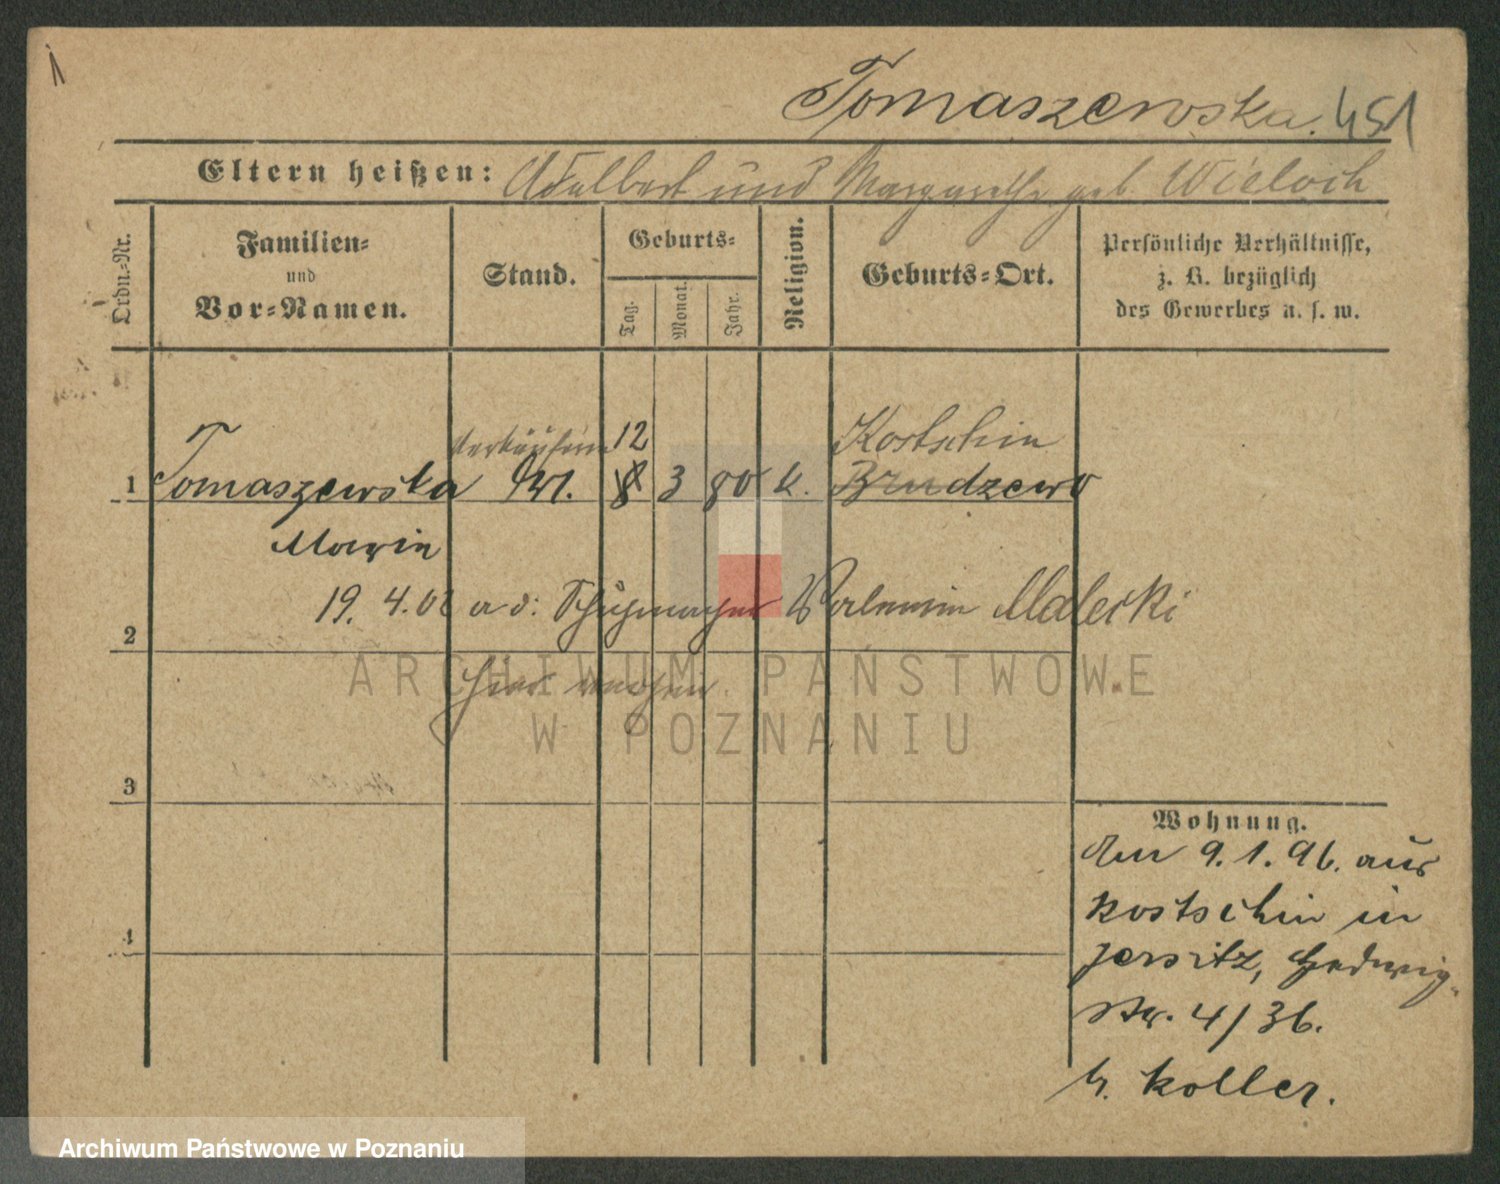 1
Tomaszewska. 451
Eltern heißen: Adalbert und Margarethe geb. Wieloch
Ordn.-Nr.
Familien-
und
Vor-Namen.
Stand.
Geburts-
Tag.
Monat.
Jahr.
Religion.
Geburts-Ort.
Persönliche Verhältnisse,
z. B. bezüglich
des Gewerbes u. s. w.
Verkäuferin 12 Kostschin
1 Tomaszewska 8 3 80 k. Brudzewo
Marie
19. 4. 02 a. d. Schuhmacher Malecki
2
3
4
Wohnung.
Am 9. 1. 96. aus
Kostschin in
Jersitz, Hedwig-
str. 4/36.
b. Koller.
ARCHIWUM PAŃSTWOWE
W POZNANIU
Archiwum Państwowe w Poznaniu